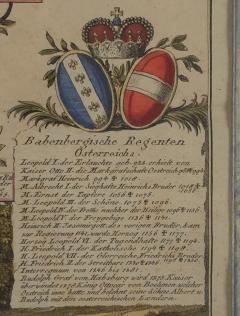 Babenbergische Regenten
Österreichs.
Leopold I. der Erlauchte geb. 923. erhielt von
Kaiser Otto II. die Markgrafschaft Oestreich 984
Markgraf Heinrich 994 1018.
M. Albrecht I. der Sieghafte Heinrichs Bruder 1018
M. Ernst der Tapfere 1056 1075.
M. Leopold II. der Schöne. 1075 1096.
M. Leopold IV. der Freygebige 1136 1141.
Heinrich II. Jasomirgott des vorigen Bruder, kam
zur Regierung 1141, wurde Herzog 1156 1177.
Herzog Leopold VI. der Tugendhafte 1177 1194.
H. Friedrich I. der Katholische. 1194 1198.
H. Leopold VII. der Glorreiche, Friedrichs Bruder
H. Friedrich II. der Streitbare 1230 1246
Interregnum von 1246 bis 1281.
Rudolph Graf von Habsburg wird 1273. Kaiser
überwindet 1278 König Ottocar von Boehmen welcher
Oestreich inne hatte, und belehnt seine Söhne Albert u.
Rudolph mit den oesterreichischen Laendern.